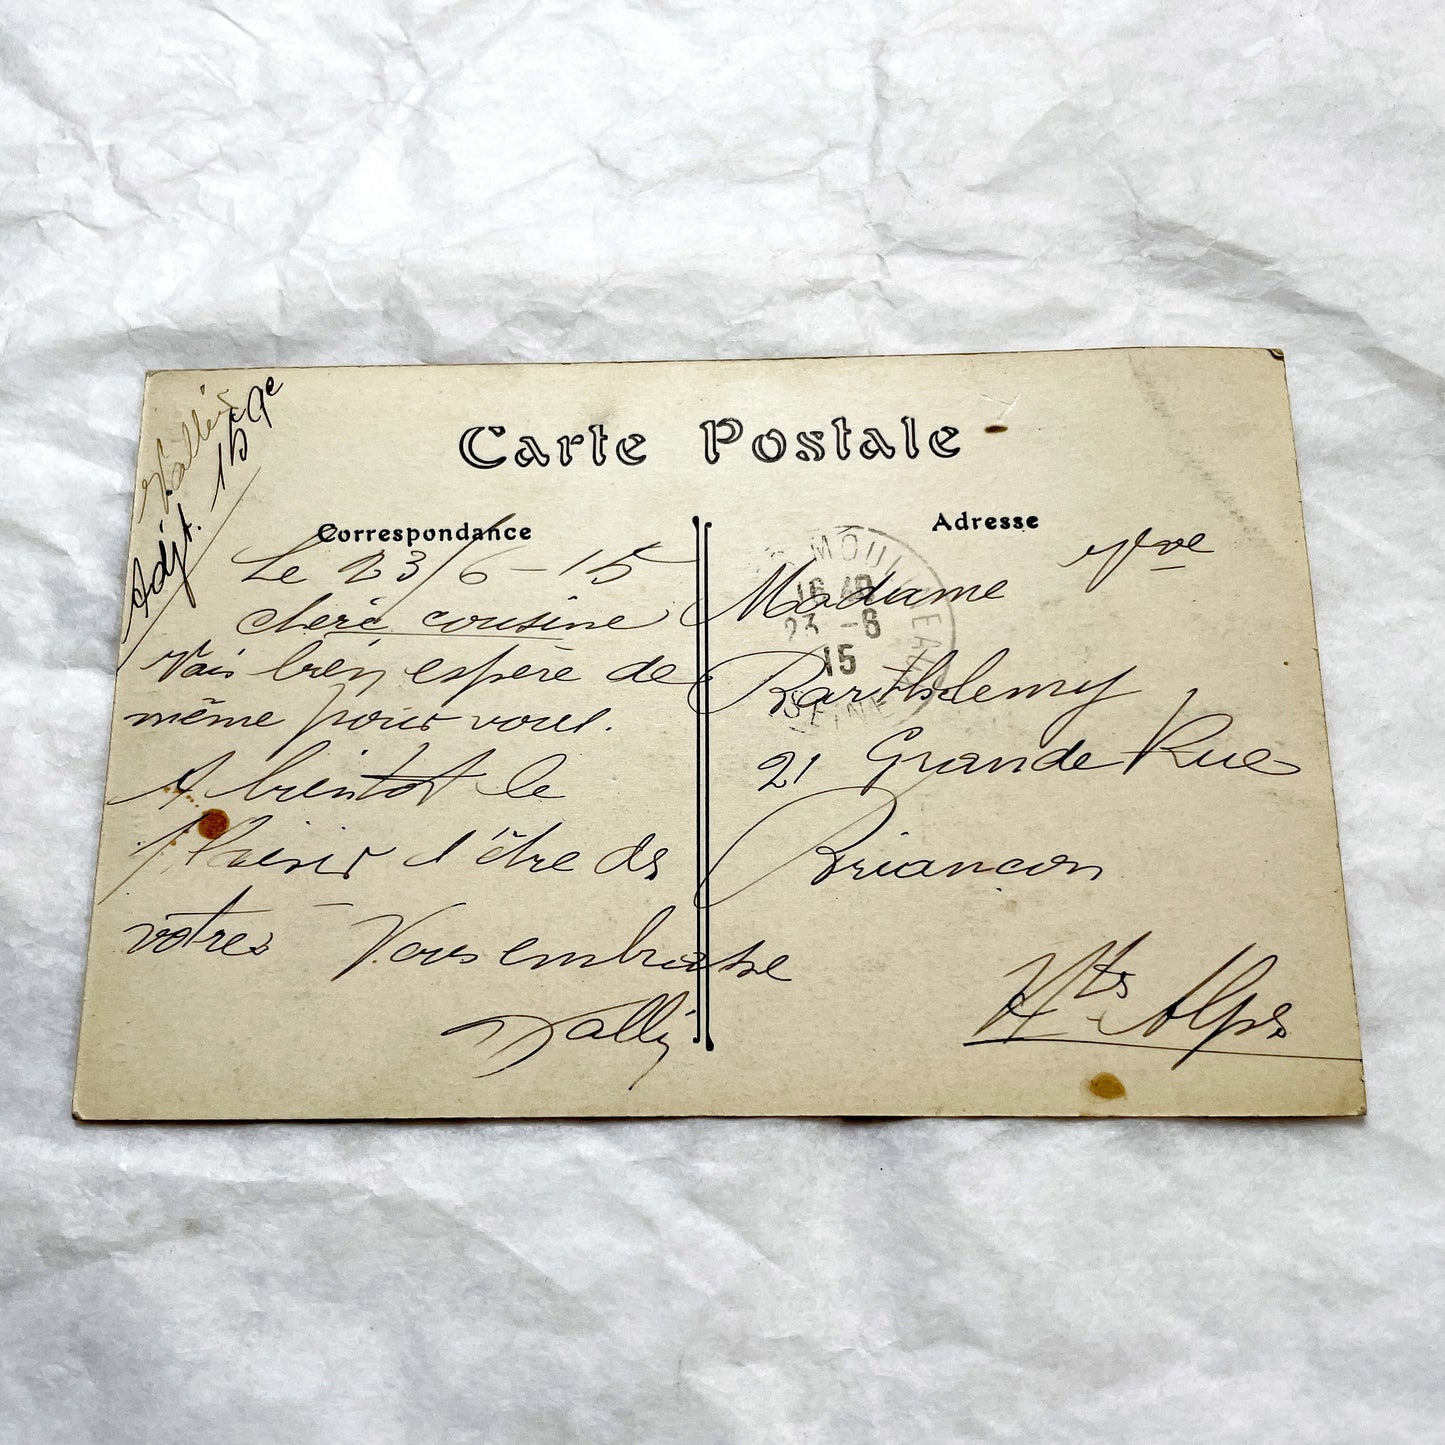 Carte Postale
Adjt. 15 9e
Correspondance
Le 23/6-15
chère cousine
Vais bien, espère de
même pour vous.
A bientôt le
Plaisir d'être des
votres Vous embrasse
Adresse
Madame Vve
Barthelemy
21 Grande Rue
Briancon
Htes Alpes
MOULINEAUX
16 40
23 -6
15
SEINE